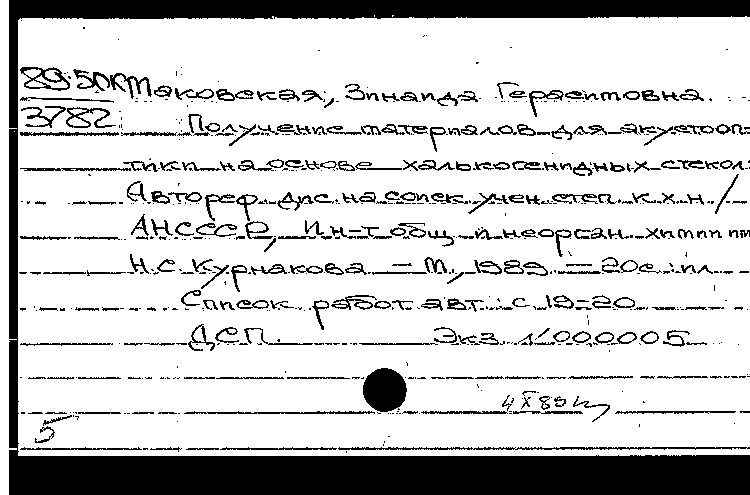 89-5ДК Маковская, Зинаида Герасимовна.
3782 Получение материалов для акустооп-
тики на основе халькогенидных стекол:
Автореф. дис. на соиск. учен. степ. к.х.н /
АН СССР, Ин-т общ. и неорган. химии им
Н.С. Курнакова – М., 1989 – 20с.: ил
Список работ авт.: с. 19-20
ДСП. Экз. N 000005
4 X 89
5